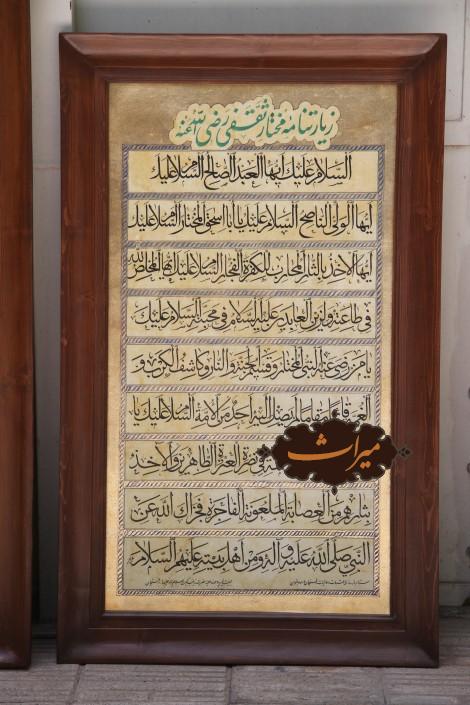 زیارتنامه مختار ثقفی رضی الله عنه
السلام علیک ایها العبد الصالح السلام علیک
ایها الولی الناصح السلام علیک یا ابا اسحق المختار السلام علیک
ایها الاخذ بالثار المحارب للکفرة الفجار السلام علیک ایها المخلص لله
فی طاعته و لزین العابدین علیه السلام فی محبته السلام علیک
یا من رضی عنه النبی المختار و قسیم الجنة و النار و کاشف الکرب و
الغمة قائما مقاما لم یصل الیه احد من الامة السلام علیک یا
فی نصرة العترة الطاهرین و الاخذ
بثارهم من العصابة الملعونة الفاجرة فجزاک الله عن
النبی صلی الله علیه و آله و من اهل بیته علیهم السلام
میراث